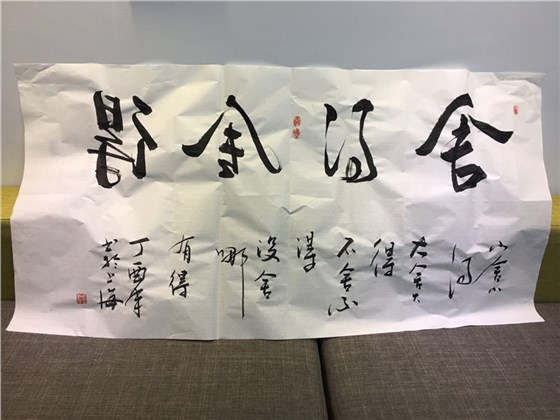 舍得舍得
小舍小
得
大舍大
得
不舍不
得
没舍
哪
有得
丁酉年
书於上海